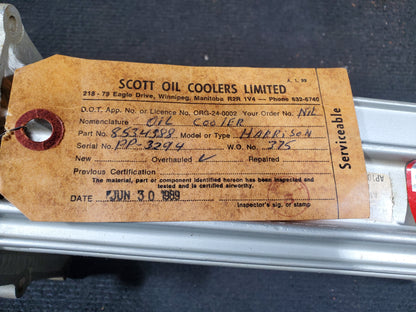 A. 1. 99
SCOTT OIL COOLERS LIMITED
215 - 79 Eagle Drive, Winnipeg, Manitoba R2R 1V4 — Phone 632-6740
D.O.T. App. No. or Licence No. ORG-24-0002 Your Order No. NIL
Nomenclature OIL COOLER
Part No. 8534988 Model or Type HARRISON
Serial No. PP-3294 W.O. No. 375
New Overhauled ✓ Repaired
Previous Certification
The material, part or component identified hereon has been inspected and
tested and is certified airworthy.
DATE JUN 30 1989
Inspector's sig. or stamp
Serviceable